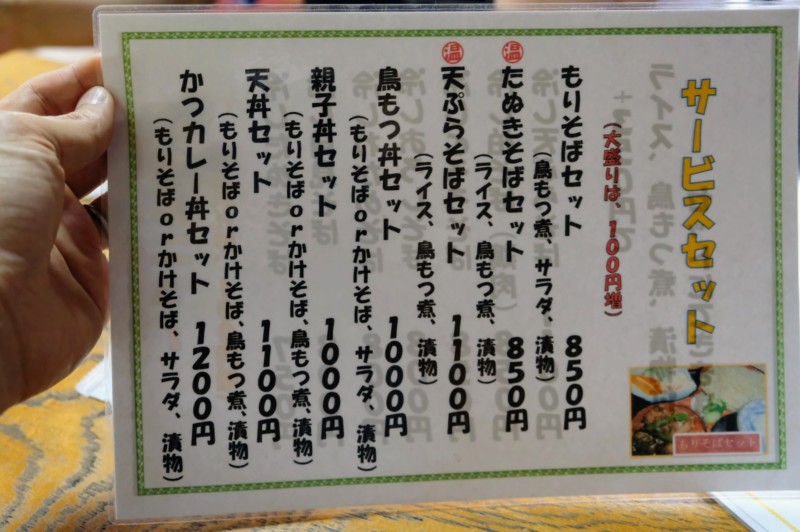 サービスセット
（大盛りは、100円増）
もりそばセット 850円
（鳥もつ煮、サラダ、漬物）
温 たぬきそばセット 850円
（ライス、鳥もつ煮、漬物）
温 天ぷらそばセット 1100円
（ライス、鳥もつ煮、漬物）
鳥もつ丼セット 1000円
（もりそばorかけそば、サラダ、漬物）
親子丼セット 1000円
（もりそばorかけそば、鳥もつ煮、漬物）
天丼セット 1100円
（もりそばorかけそば、鳥もつ煮、漬物）
かつカレー丼セット 1200円
（もりそばorかけそば、サラダ、漬物）
もりそばセット